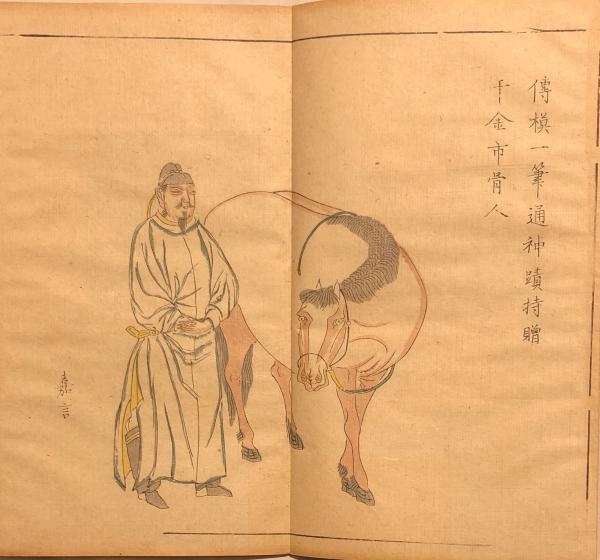 傳模一筆通神蹟持贈
千金市骨人
嘉言